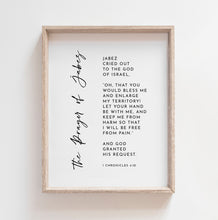 the Prayer of Jabez
JABEZ
CRIED OUT
TO THE GOD
OF ISRAEL,
"OH, THAT YOU
WOULD BLESS ME
AND ENLARGE
MY TERRITORY!
LET YOUR HAND
BE WITH ME, AND
KEEP ME FROM
HARM SO THAT
I WILL BE FREE
FROM PAIN."
AND GOD
GRANTED
HIS REQUEST.
1 CHRONICLES 4:10